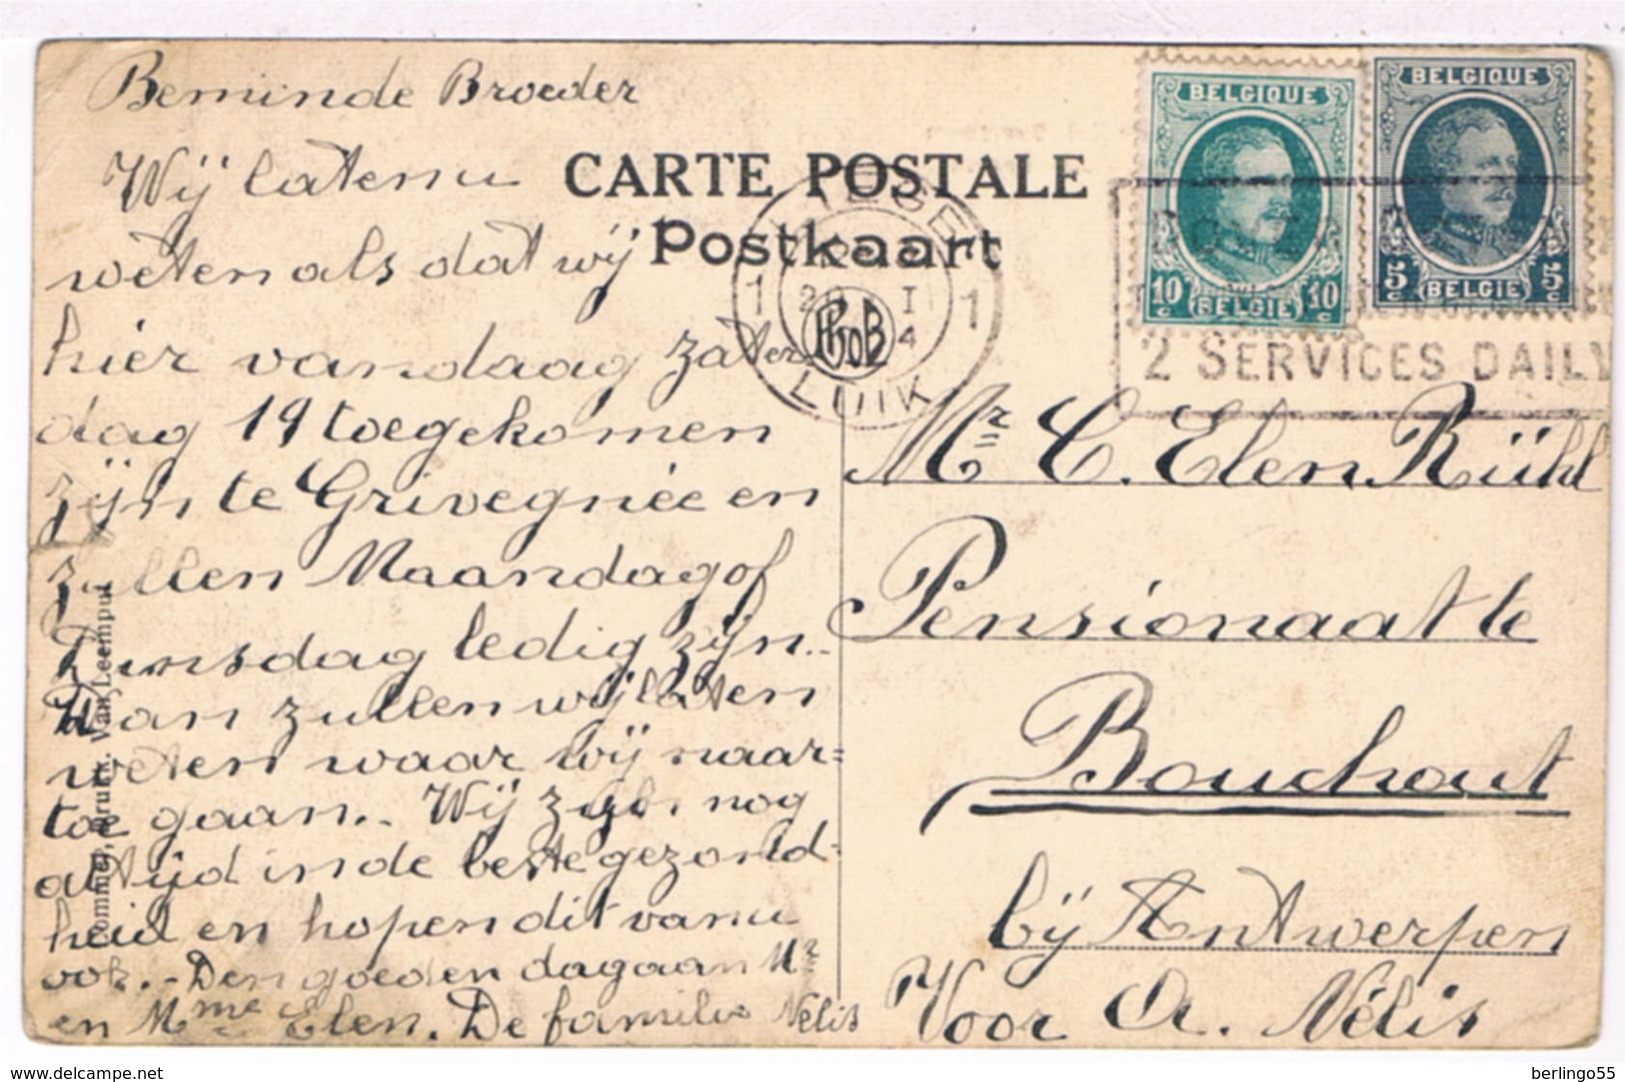 Beminde Broeder
Wij laten u
weten als dat wij
hier vandaag zater
dag 19 toegekomen
zijn te Grivegnée en
zullen Maandag of
Dinsdag ledig zijn..
Dan zullen wij laten
weten waar wij naar=
toe gaan.. Wij zijn nog
altijd in de beste gezond-
heid en hopen dit van u
ook.- Den goeden dag aan Mr
en Mme Elen. De familie Nelis
CARTE POSTALE
Postkaart
LIEGE
1 1
I
4
LUIK
BELGIQUE
10c 10c
(BELGIE)
BELGIQUE
5c 5c
(BELGIE)
2 SERVICES DAILY
Mr C. Elen Rühl
Pensionaat te
Bouchout
bij Antwerpen
Voor A. Nélis
Van Leemput
delcampe.net
berlingo55